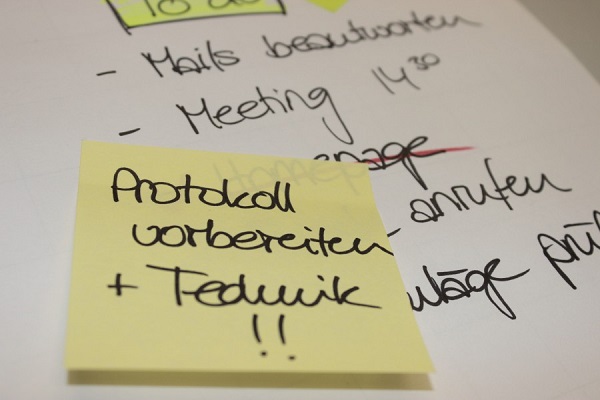 To do
- Mails beautworten
- Meeting 14³⁰
Homepage
- anrufen
Protokoll
vorbereiten
+ Technik
!!